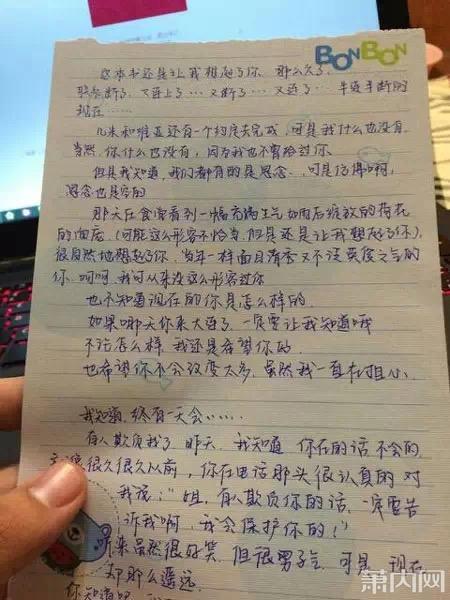 BONBON
这本书还是让我想起了你. 那么久了.
联系断了. 又连上了… 又断了… 又连了… 半连半断的
现在……
几米和维亚还有一个约定去完成, 可是我什么也没有.
当然 你什么也没有, 因为我也不曾给过你.
但是我知道, 我们都有的是思念. 可是彷彿啊,
思念也是空的
那天在食堂看到一幅充满生气如雨后绽放的荷花
的面庞. (可能这么形容不恰当. 但是还是让我想起了你).
很自然地想起了你. 当年一样面目清秀又不谈英俊之气的
你. 呵呵. 我可从来没这么形容过你
也不知道现在的你是怎么样的.
如果哪天你来大连了. 一定要让我知道哦
不论怎么样. 我还是希望你的.
也希望你不会改变太多. 虽然我一直在担心.
我知道. 终有一天会……
有人欺负我了. 昨天. 我知道. 你在的话不会的.
很久很久以前, 你在电话那头很认真的对
我说: "姐, 有人欺负你的话. 一定要告
诉我啊. 我会保护你的!"
听来虽然很好笑. 但很男子气. 可是. 现在
却那么遥远.
你知道吧.
萧内网